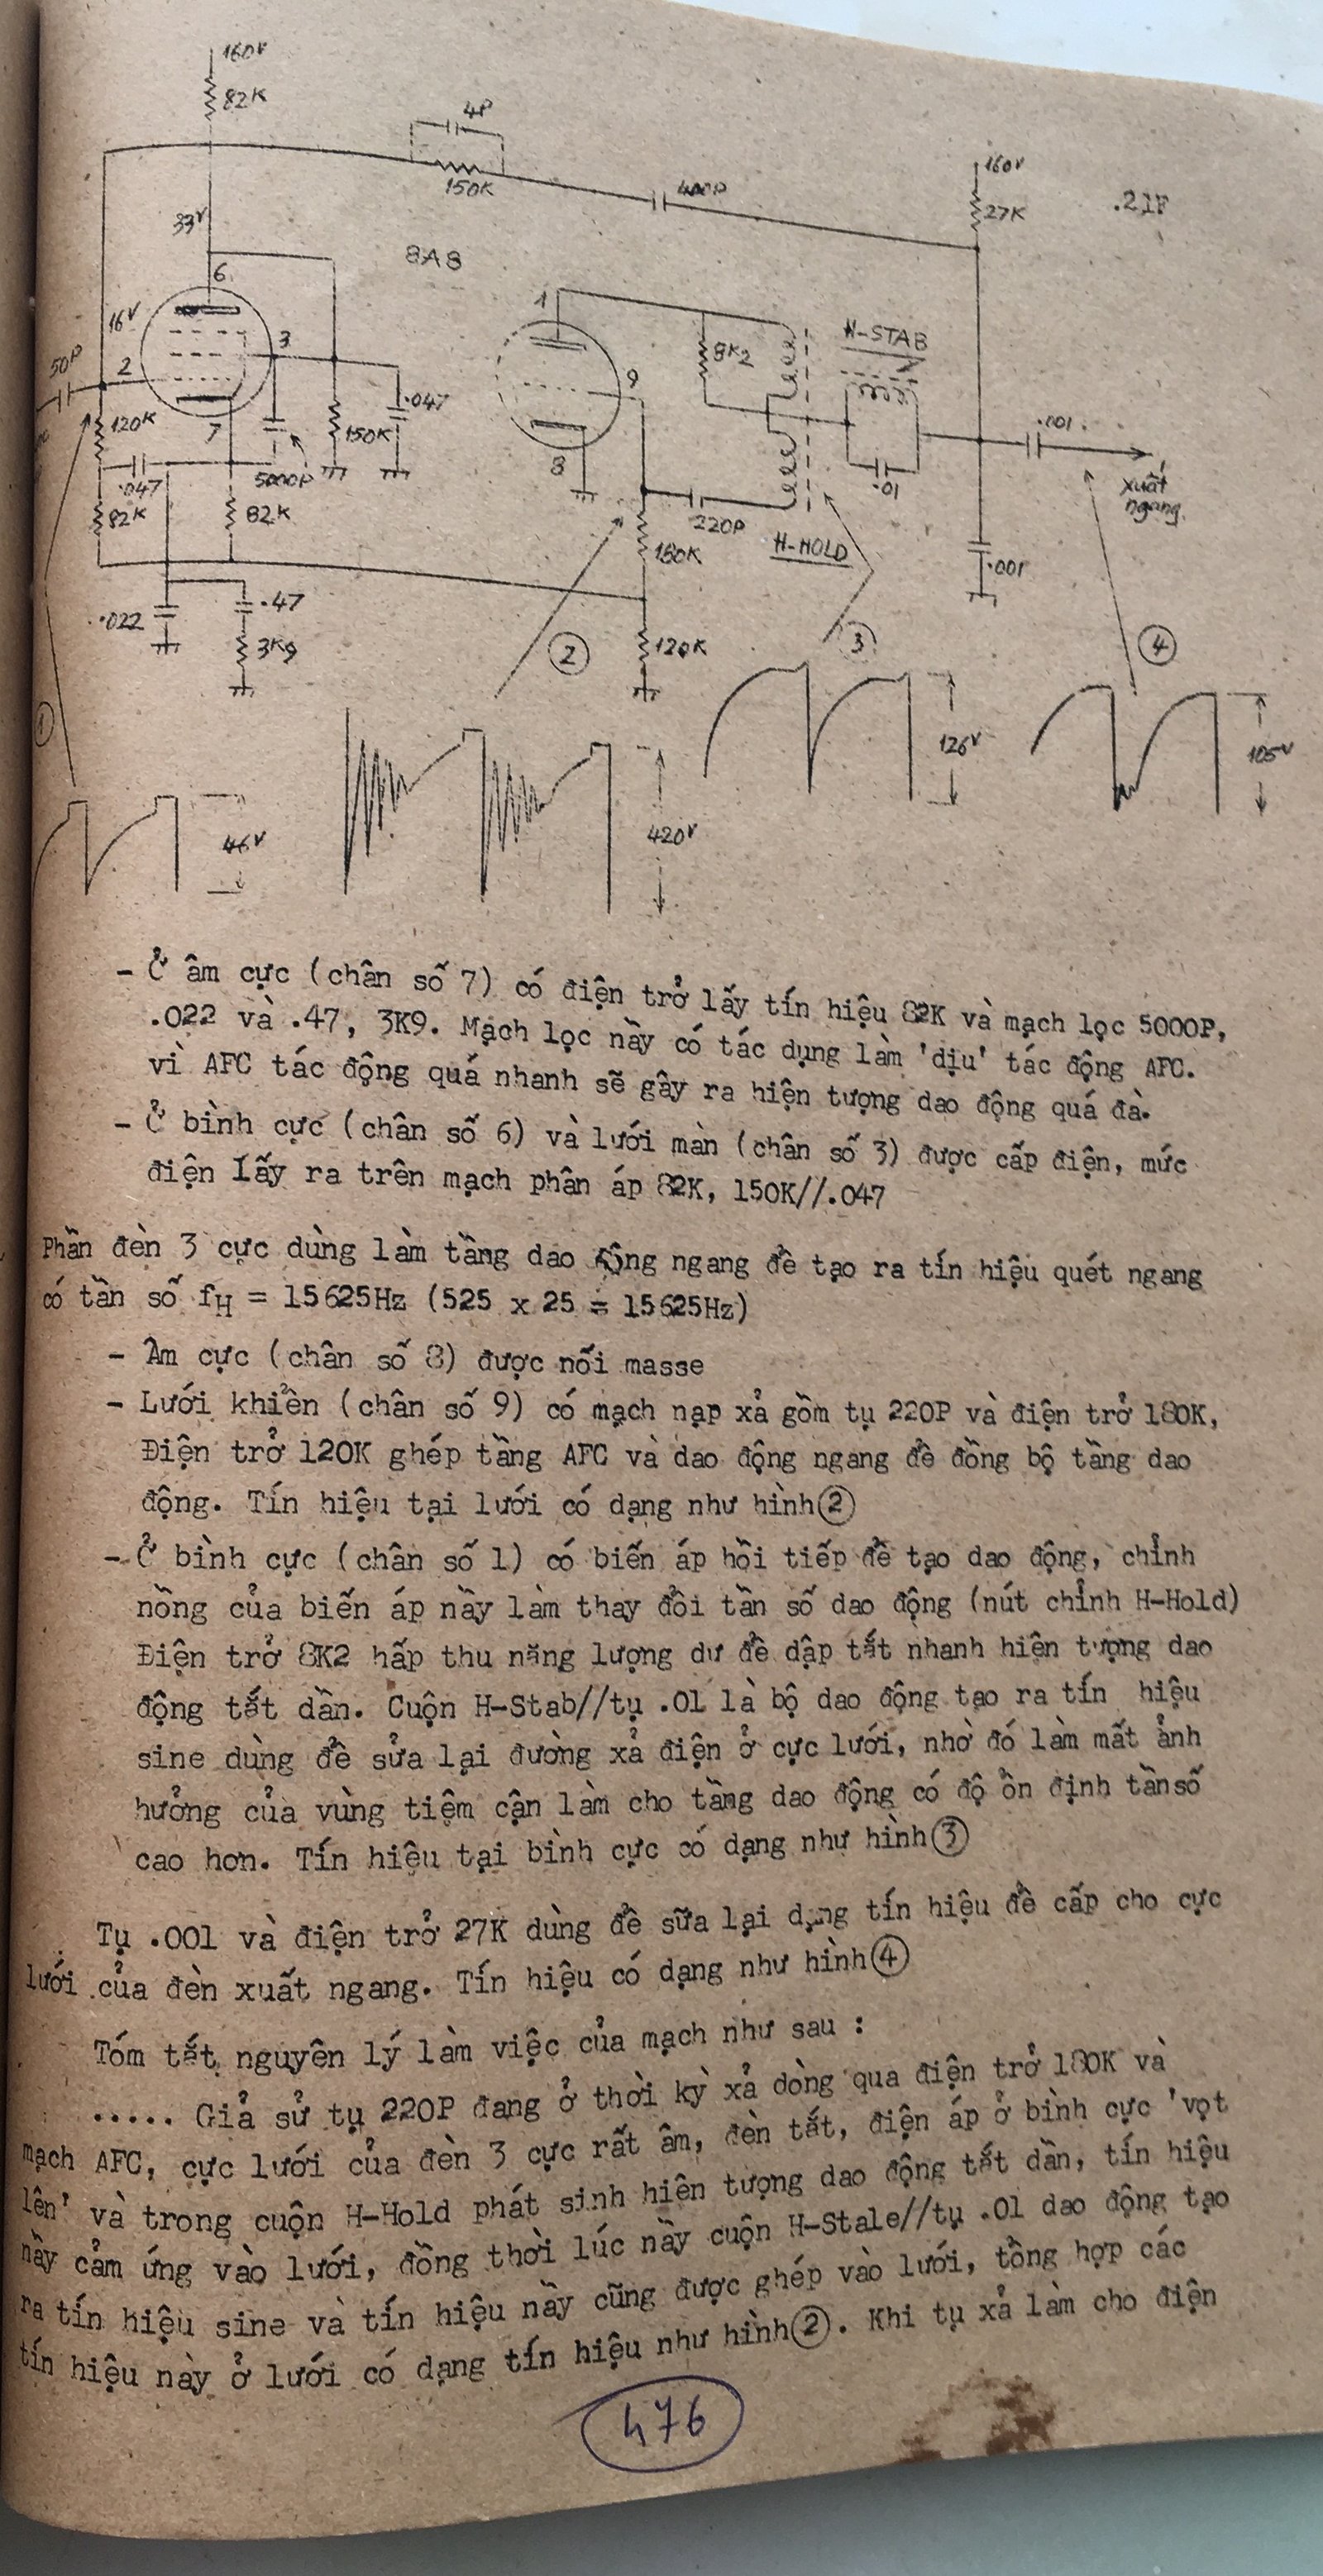 160V
82K
4P
150K
400P
160V
27K
.21F
33V
8A8
6
1
16V
3
H-STAB
8K2
50P
2
9
120K
7
150K
.047
.001
8
.047
5000P
.01
xuất
ngang
82K
82K
220P
180K
H-HOLD
.001
.47
.022
3K9
120K
2
3
4
1
126V
105V
46V
420V
- Ở âm cực (chân số 7) có điện trở lấy tín hiệu 82K và mạch lọc 5000P,
.022 và .47, 3K9. Mạch lọc nầy có tác dụng làm 'dịu' tác động AFC.
vì AFC tác động quá nhanh sẽ gây ra hiện tượng dao động quá đà.
- Ở bình cực (chân số 6) và lưới màn (chân số 3) được cấp điện, mức
điện lấy ra trên mạch phân áp 82K, 150K//.047
Phần đèn 3 cực dùng làm tầng dao động ngang để tạo ra tín hiệu quét ngang
có tần số fH = 15625Hz (525 x 25 = 15625Hz)
- Âm cực (chân số 8) được nối masse
- Lưới khiển (chân số 9) có mạch nạp xả gồm tụ 220P và điện trở 180K,
Điện trở 120K ghép tầng AFC và dao động ngang để đồng bộ tầng dao
động. Tín hiệu tại lưới có dạng như hình ②
- Ở bình cực (chân số 1) có biến áp hồi tiếp để tạo dao động, chỉnh
nồng của biến áp nầy làm thay đổi tần số dao động (nút chỉnh H-Hold)
Điện trở 8K2 hấp thu năng lượng dư để dập tắt nhanh hiện tượng dao
động tắt dần. Cuộn H-Stab//tụ .01 là bộ dao động tạo ra tín hiệu
sine dùng để sửa lại đường xả điện ở cực lưới, nhờ đó làm mất ảnh
hưởng của vùng tiệm cận làm cho tầng dao động có độ ổn định tần số
cao hơn. Tín hiệu tại bình cực có dạng như hình ③
Tụ .001 và điện trở 27K dùng để sữa lại dạng tín hiệu để cấp cho cực
lưới của đèn xuất ngang. Tín hiệu có dạng như hình ④
Tóm tắt nguyên lý làm việc của mạch như sau :
..... Giả sử tụ 220P đang ở thời kỳ xả dòng qua điện trở 180K và
mạch AFC, cực lưới của đèn 3 cực rất âm, đèn tắt, điện áp ở bình cực 'vọt
lên' và trong cuộn H-Hold phát sinh hiện tượng dao động tắt dần, tín hiệu
nầy cảm ứng vào lưới, đồng thời lúc nầy cuộn H-Stale//tụ .01 dao động tạo
ra tín hiệu sine và tín hiệu nầy cũng được ghép vào lưới, tổng hợp các
tín hiệu này ở lưới có dạng tín hiệu như hình ②. Khi tụ xả làm cho điện
476